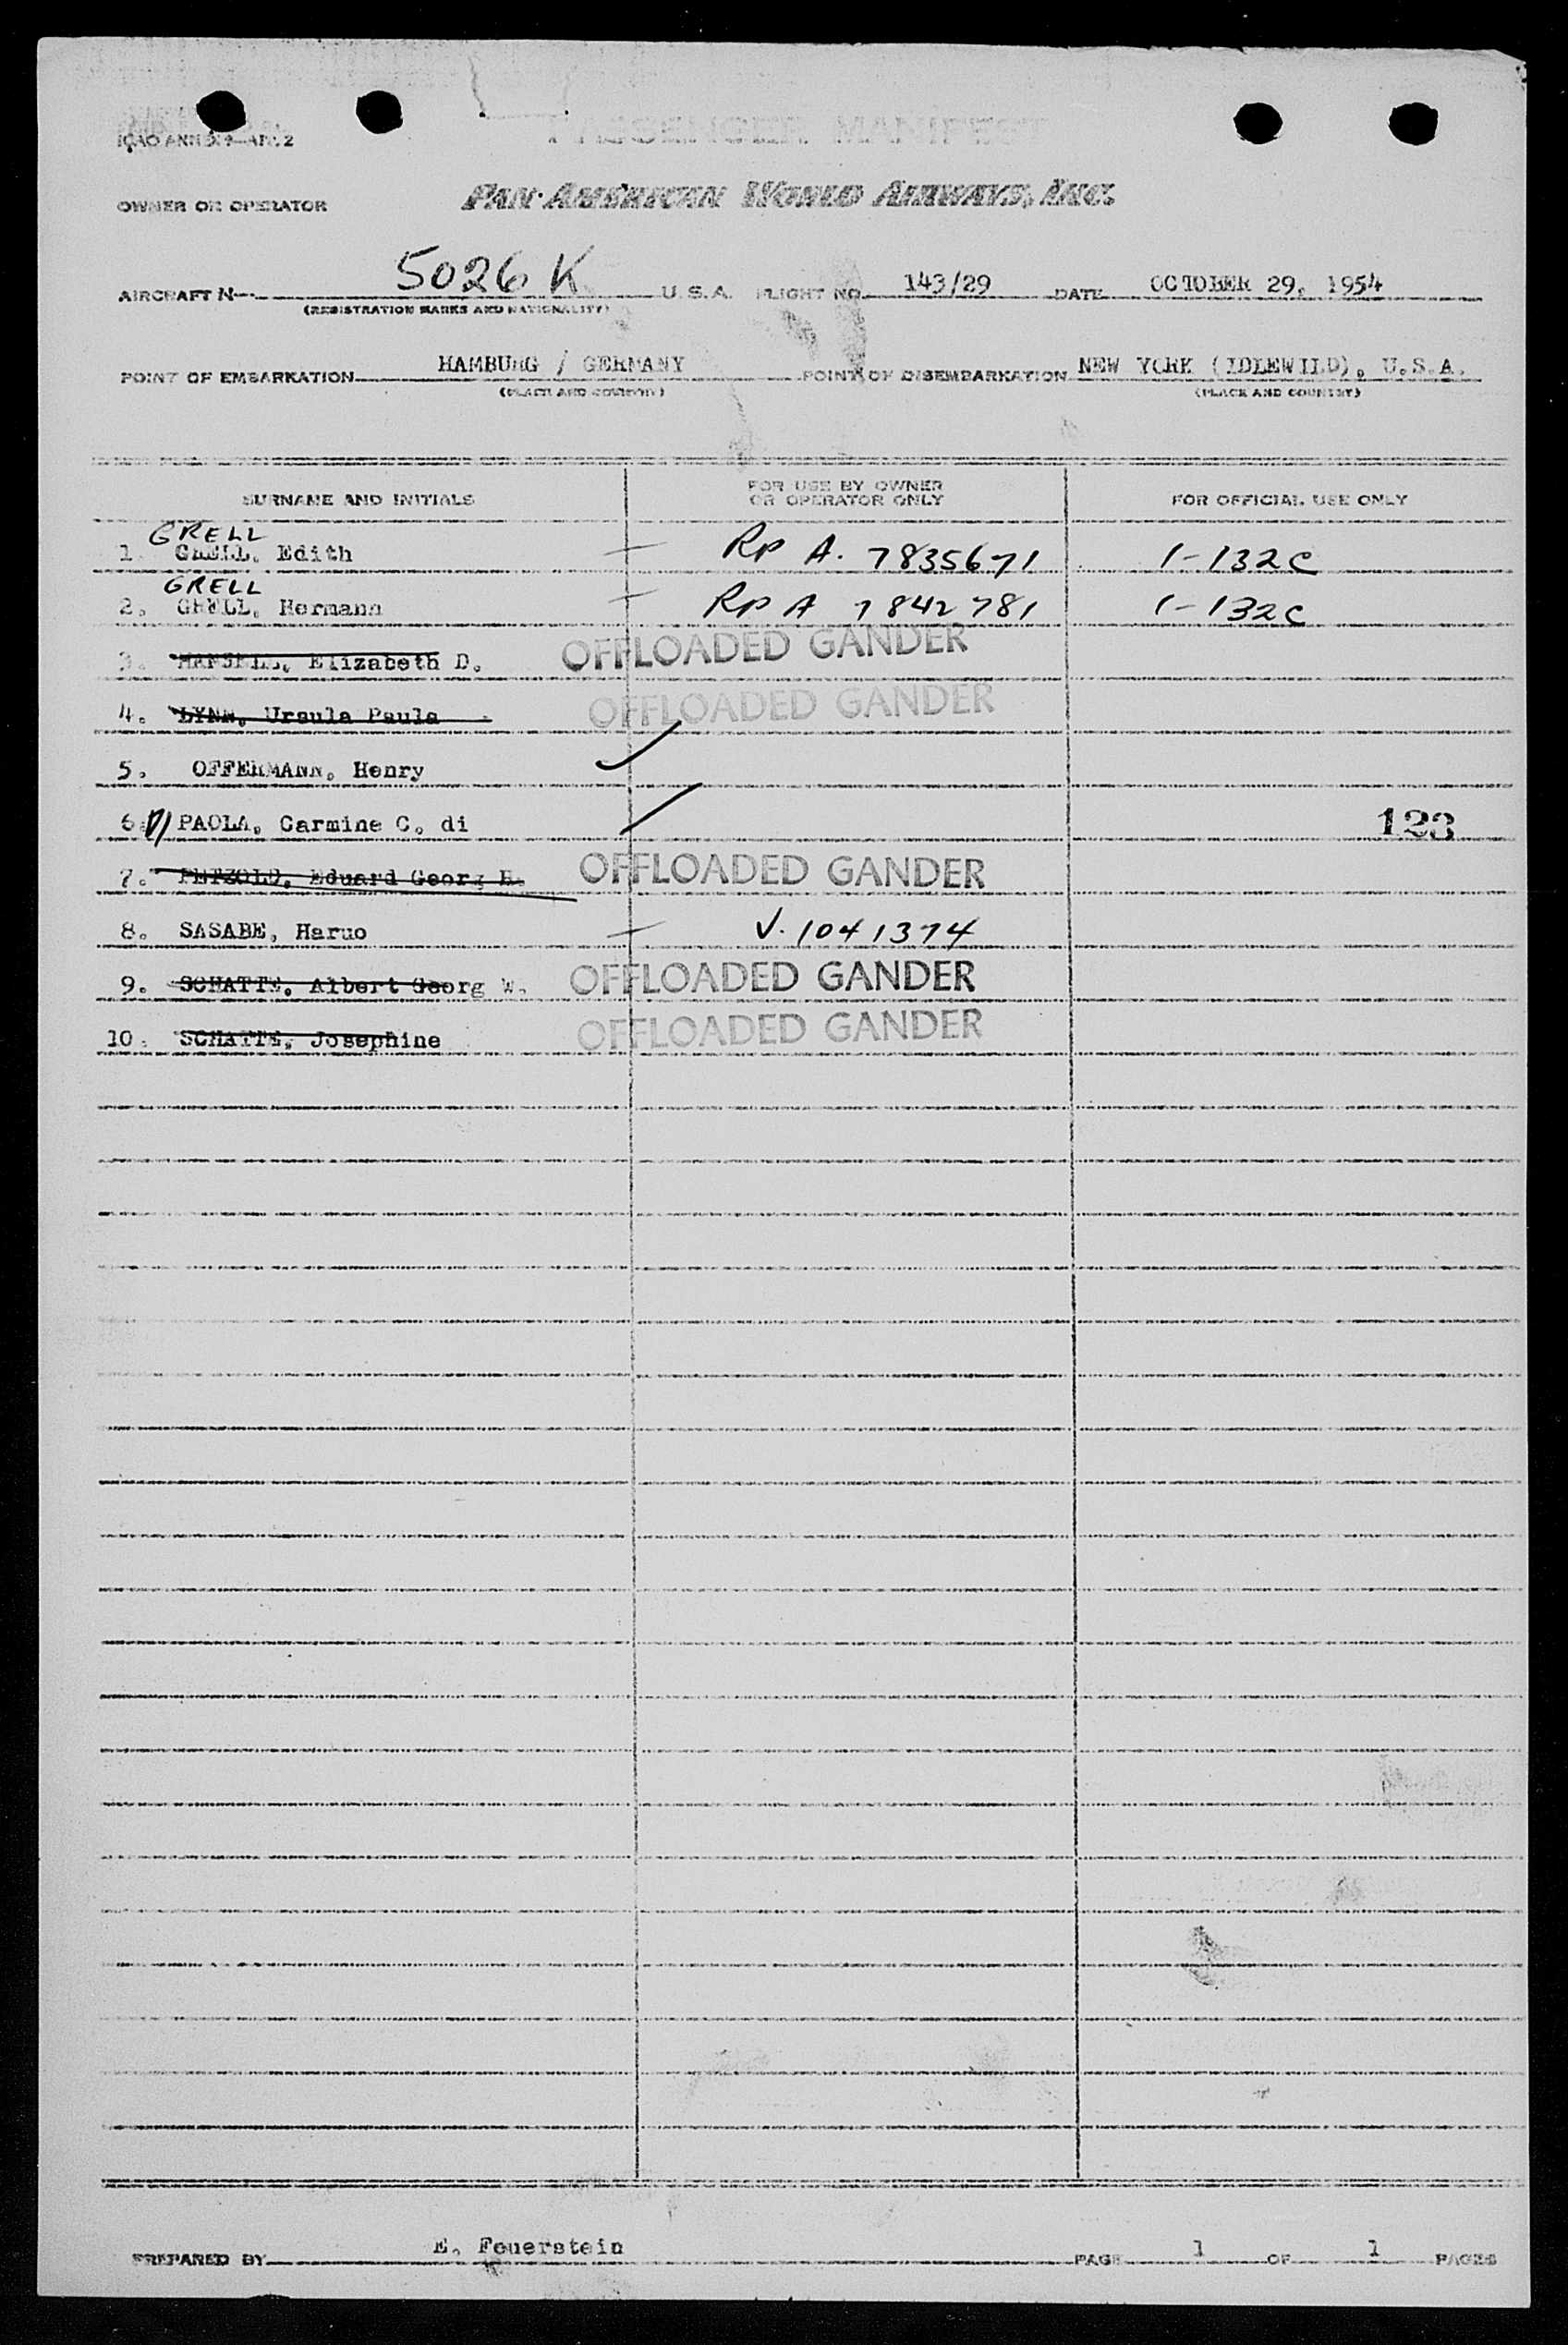 ICAO ANNEX 9—APP. 2
PASSENGER MANIFEST
OWNER OR OPERATOR PAN AMERICAN WORLD AIRWAYS, INC.
AIRCRAFT N— 5026 K U. S. A. FLIGHT NO. 143/29 DATE OCTOBER 29, 1954
(REGISTRATION MARKS AND NATIONALITY)
POINT OF EMBARKATION HAMBURG / GERMANY POINT OF DISEMBARKATION NEW YORK (IDLEWILD), U.S.A.
(PLACE AND COUNTRY) (PLACE AND COUNTRY)
SURNAME AND INITIALS FOR USE BY OWNER OR OPERATOR ONLY FOR OFFICIAL USE ONLY
GRELL
1. GRELL, Edith — RP A. 7835671 1-132C
GRELL
2. GRELL, Hermann — RP A 7842781 1-132C
3. Elizabeth D. OFFLOADED GANDER
4. LYNN, Ursula Paula OFFLOADED GANDER
5. OFFERMANN, Henry ✓
6. PAOLA, Carmine C. di / 123
7. PETZOLD, Eduard Georg H. OFFLOADED GANDER
8. SASABE, Haruo — V. 1041374
9. SCHATTE, Albert Georg W. OFFLOADED GANDER
10. SCHATTE, Josephine OFFLOADED GANDER
PREPARED BY E. Feuerstein PAGE 1 OF 1 PAGES